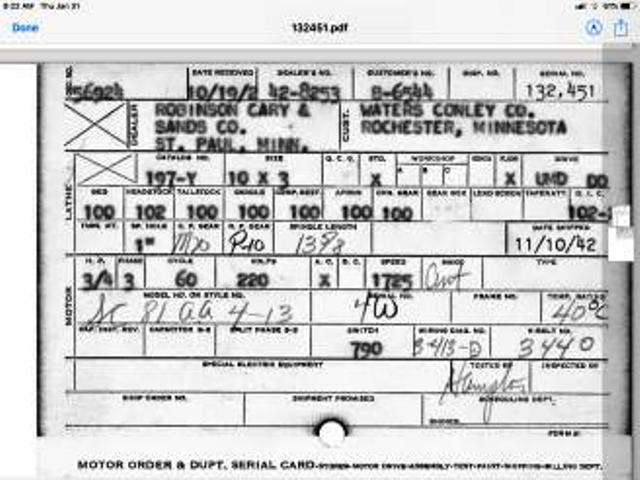 8:22 AM Thu Jan 21
Done
132451.pdf
DATE RECEIVED DEALER'S NO. CUSTOMER'S NO. INSP. NO. SERIAL NO.
56924 10/19/2 42-8253 B-6544 132,451
DEALER ROBINSON CARY & CUST. WATERS CONLEY CO.
SANDS CO. ROCHESTER, MINNESOTA
ST. PAUL, MINN.
CATALOG NO. SIZE Q.C.G. STD. WORKSHOP DRIVE
A B C
197-Y 10 X 3 X X UMD DD
LATHE
BED HEADSTOCK TAILSTOCK SADDLE COMP. REST. APRON CHG. GEAR GEAR BOX LEAD SCREW TAPER ATT.
100 102 100 100 100 100 100 102-
SPINDLE LENGTH DATE SHIPPED
1" R40 13 3/8 11/10/42
H. P. PHASE CYCLE VOLTS A. C. D. C. SPEED MAKE TYPE
3/4 3 60 220 X 1725
MOTOR
MODEL NO. OR STYLE NO. SERIAL NO. FRAME NO. TEMP. RATED
SC 81 AA 4-13 4W 40°C
CAPACITOR SPLIT PHASE SWITCH WIRING DIAG. NO. V-BELT NO.
790 3-413-D 3440
SPECIAL ELECTRICAL EQUIPMENT TESTED BY INSPECTED BY
Hampton
SHOP ORDER NO. SHIPMENT PROMISED SCHEDULING DEPT.
SIGNED
FORM
MOTOR ORDER & DUPT. SERIAL CARD-STORES-MOTOR DRIVE-ASSEMBLY-TEST-PAINT-SHIPPING-BILLING DEPT.